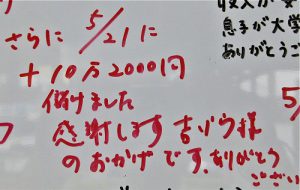 さらに 5/21に
+10万2000円
儲けました
感謝します吉ゾウ様
のおかげです、ありがとう
ござい
息子が大学
ありがとうご
5/